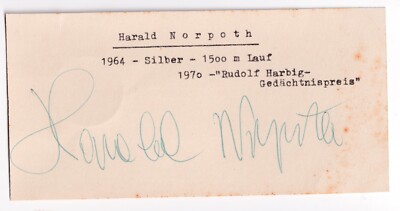 Harald Norpoth
1964 - Silber - 1500 m Lauf
1970 -"Rudolf Harbig-
Gedächtnispreis"
Harald Norpoth